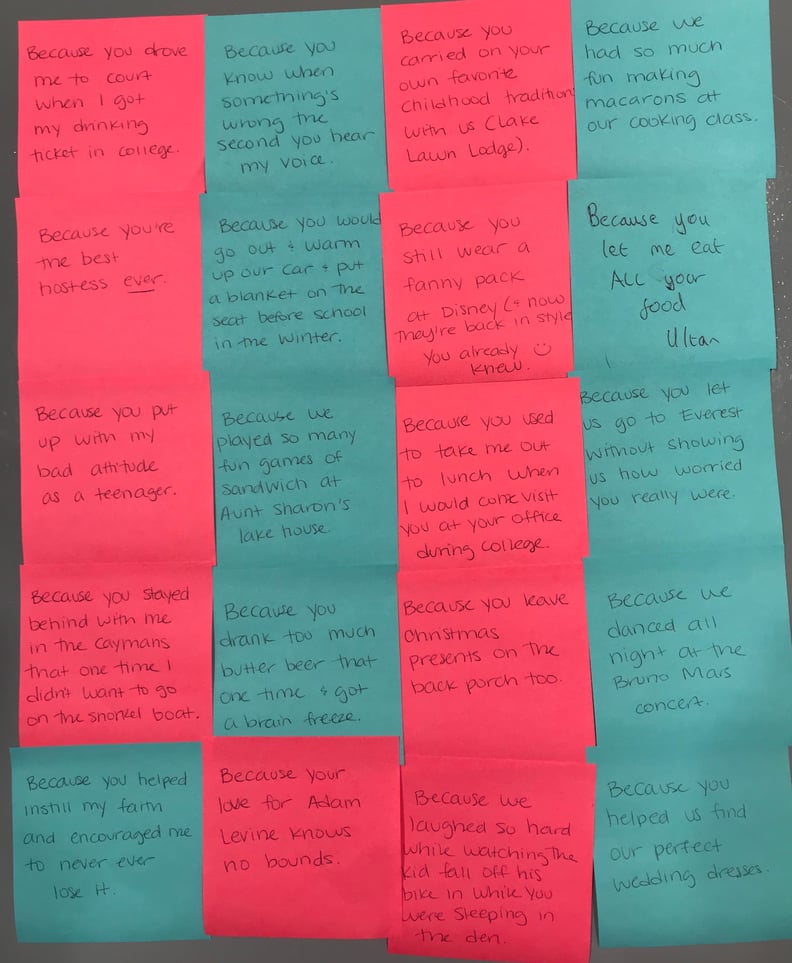 Because you drove
me to court
when I got
my drinking
ticket in college.
Because you
know when
something's
wrong the
second you hear
my voice.
Because you
carried on your
own favorite
childhood tradition
with us (Lake
Lawn Lodge).
Because we
had so much
fun making
macarons at
our cooking class.
Because you're
the best
hostess ever.
Because you would
go out & warm
up our car & put
a blanket on the
seat before school
in the winter.
Because you
still wear a
fanny pack
at Disney (& now
they're back in style
You already ☺
knew.
Because you
let me eat
ALL your
food
Ultan
Because you put
up with my
bad attitude
as a teenager.
Because we
played so many
fun games of
sandwich at
Aunt Sharon's
lake house.
Because you used
to take me out
to lunch when
I would come visit
you at your office
during college.
Because you let
us go to Everest
without showing
us how worried
you really were.
Because you stayed
behind with me
in the Caymans
that one time I
didn't want to go
on the snorkel boat.
Because you
drank too much
butter beer that
one time & got
a brain freeze.
Because you leave
Christmas
presents on the
back porch too.
Because we
danced all
night at the
Bruno Mars
concert.
Because you helped
instill my faith
and encouraged me
to never ever
lose it.
Because your
love for Adam
Levine knows
no bounds.
Because we
laughed so hard
while watching the
kid fall off his
bike in while you
were sleeping in
the den.
Because you
helped us find
our perfect
wedding dresses.